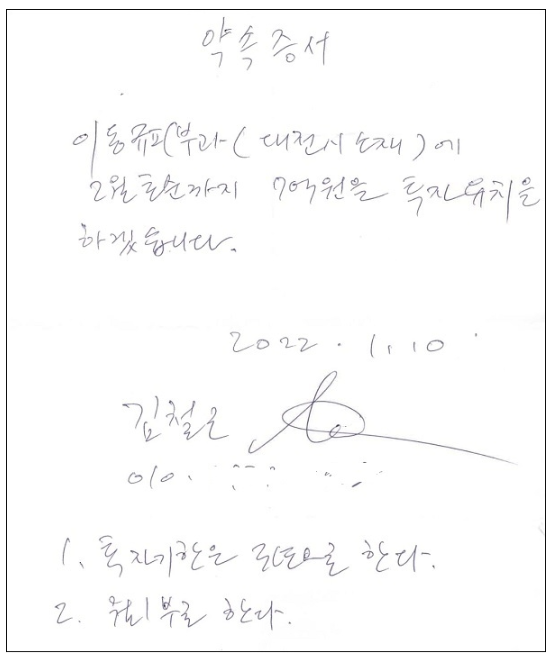 약속증서
이동규피부과(대전시 소재)에
2월 초순까지 7억원을 투자유치를
하겠습니다.
2022. 1. 10
김철은
010.
1. 투자기한은 으로 한다.
2. 부로 한다.